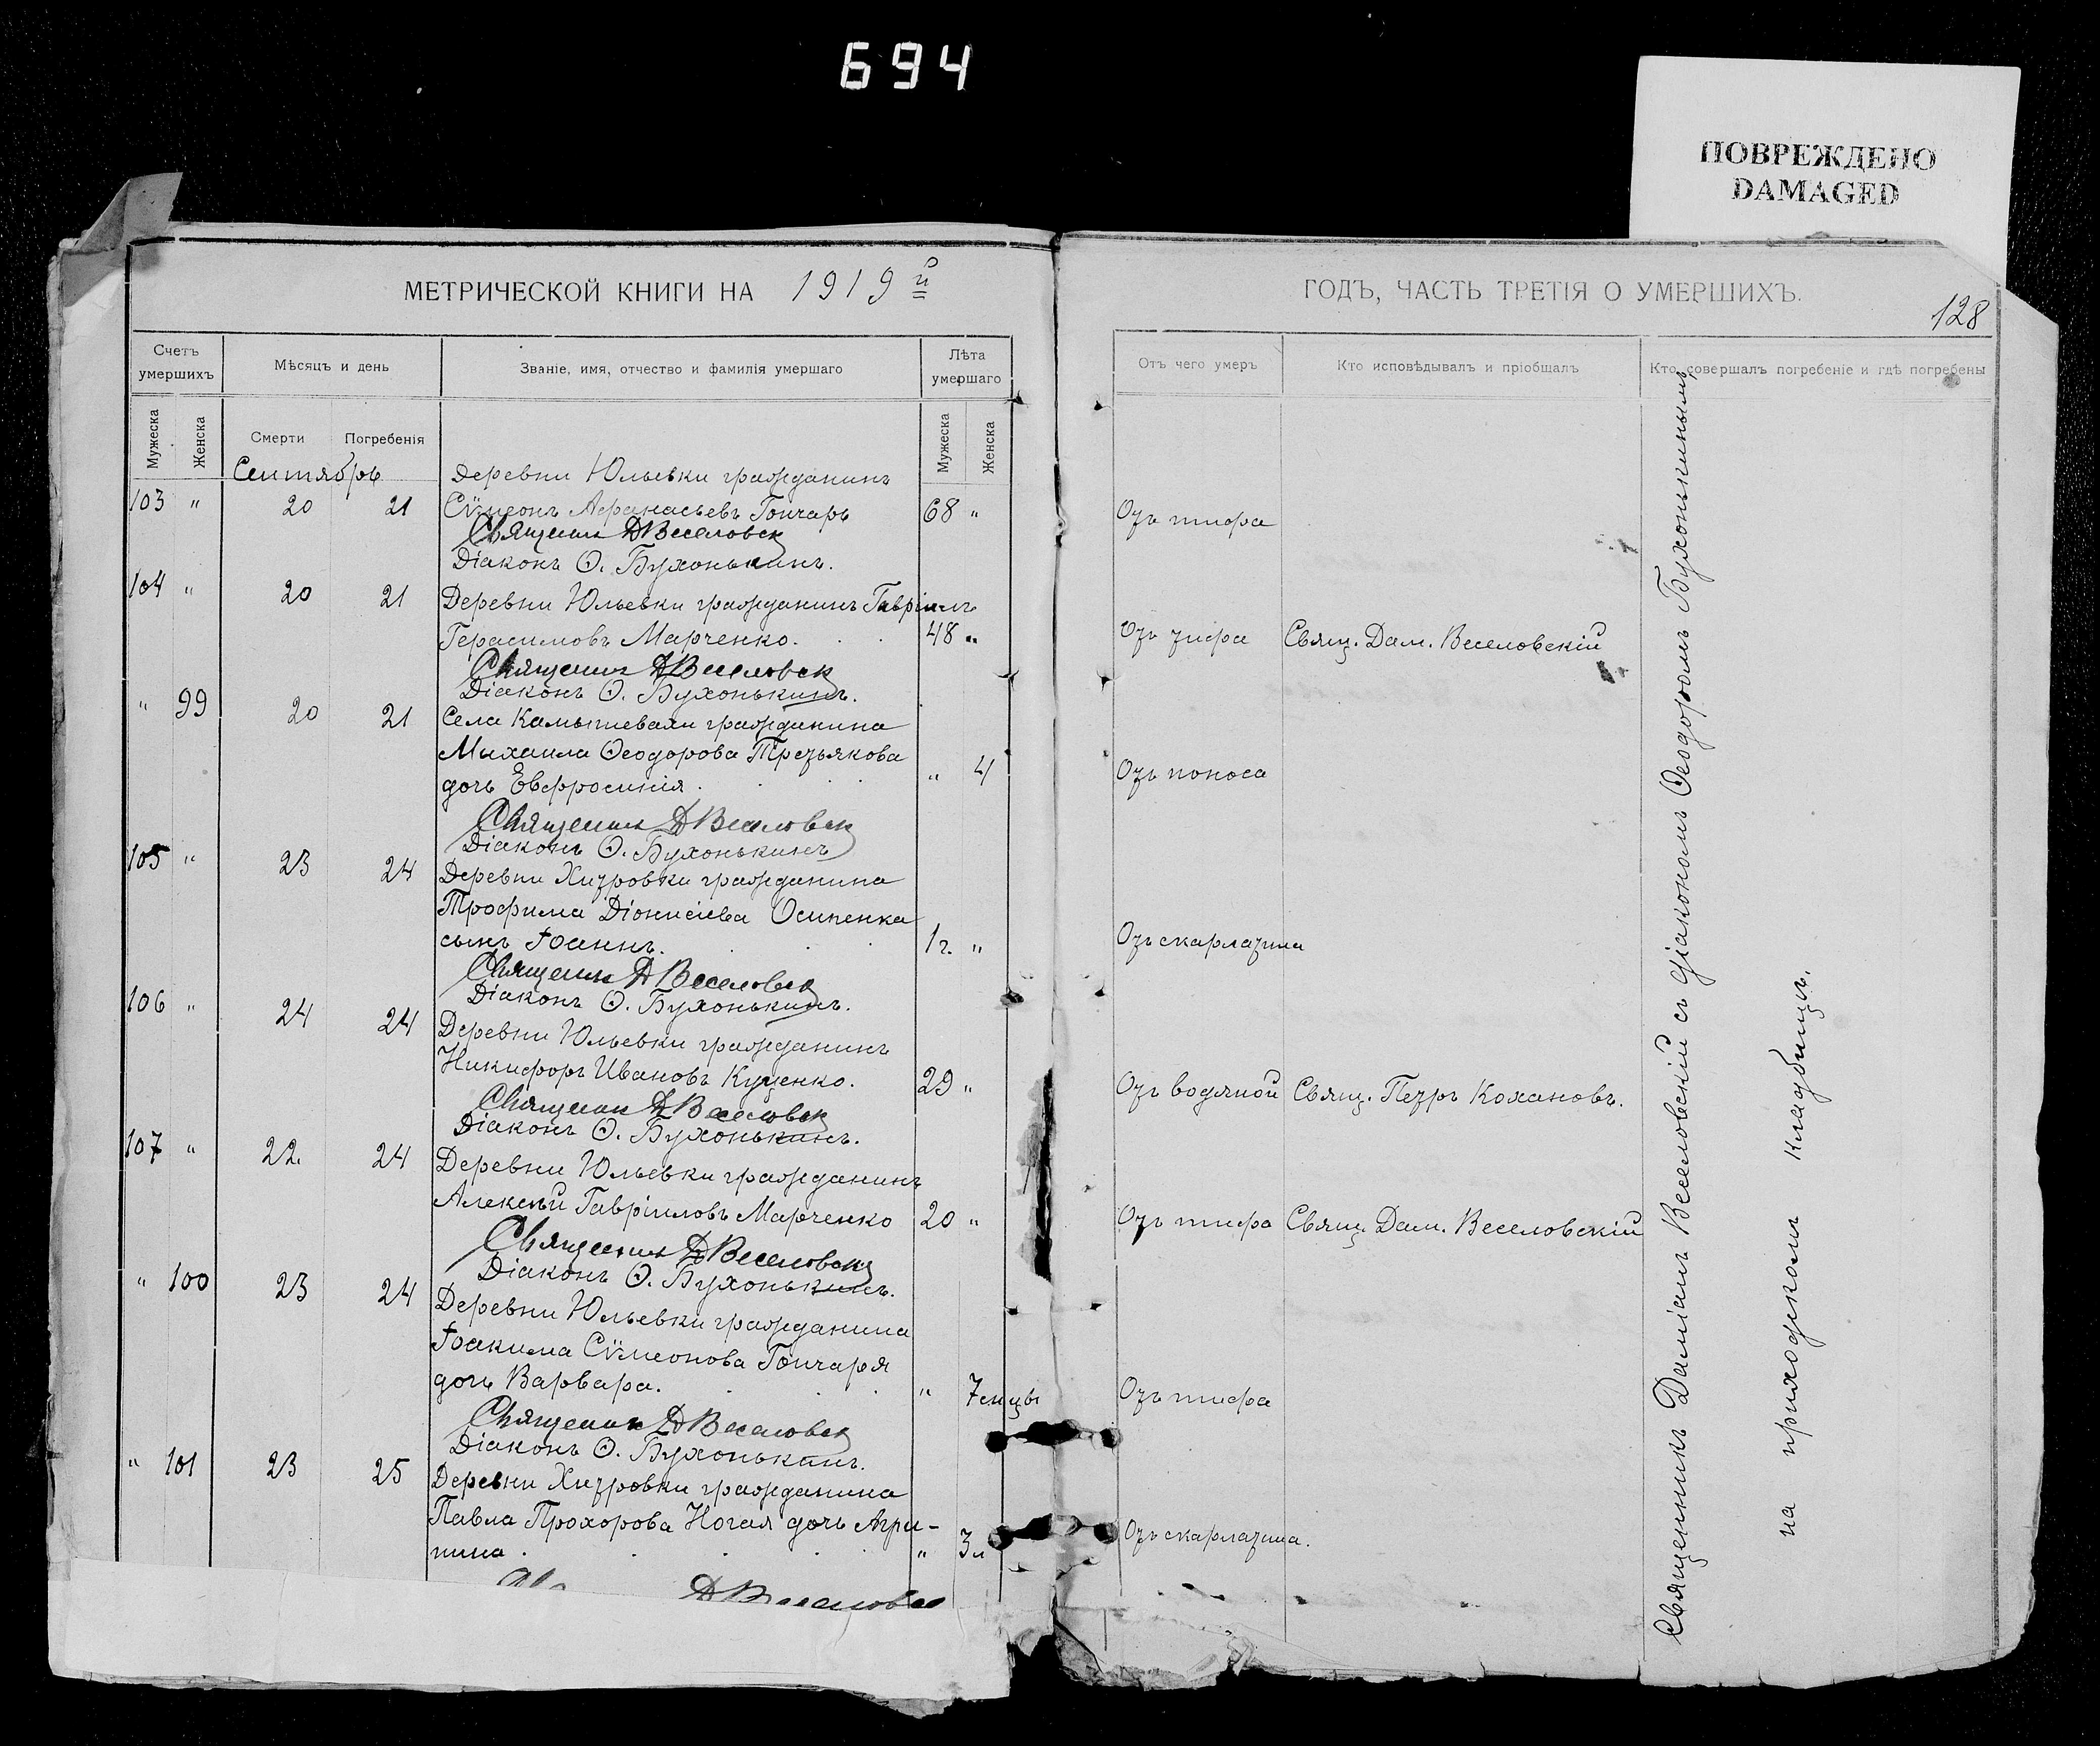 694
ПОВРЕЖДЕНО
DAMAGED
МЕТРИЧЕСКОЙ КНИГИ НА 1919й
Счетъ умершихъ
Мѣсяцъ и день
Званіе, имя, отчество и фамилія умершаго
Лѣта умершаго
Мужеска
Женска
Смерти
Погребенія
Мужеска
Женска
Сентябрь
Деревни Юльевки гражданинъ
103 " 20 21 Сѵмеонъ Аѳанасьевъ Гончарь 68 "
Священник ДВеселовск
Діаконъ Ѳ. Бухонькинъ.
104 " 20 21 Деревни Юльевки гражданинъ Гавріилъ
Герасимовъ Марченко. 48 "
Священник ДВеселовск
Діаконъ Ѳ. Бухонькинъ.
" 99 20 21 Села Камышевахи гражданина
Михаила Ѳеодорова Третьякова
дочь Евфросинія. " 4
Священник ДВеселовск
Діаконъ Ѳ. Бухонькинъ
105 " 23 24 Деревни Хитровки гражданина
Трофима Діонисіева Осипенка
сынъ Іоаннъ. 1г. "
Священник ДВеселовск
Діаконъ Ѳ. Бухонькинъ.
106 " 24 24 Деревни Юльевки гражданинъ
Никифоръ Ивановъ Куценко. 29 "
Священник ДВеселовск
Діаконъ Ѳ. Бухонькинъ.
107 " 22. 24 Деревни Юльевки гражданинъ
Алексѣй Гавріиловъ Марченко 20 "
Священник ДВеселовск
Діаконъ Ѳ. Бухонькинъ.
" 100 23 24 Деревни Юльевки гражданина
Іоакима Сѵмеонова Гончаря
дочь Варвара. " 7 мцы
Священник ДВеселовск
Діаконъ Ѳ. Бухонькинъ.
" 101 23 25 Деревни Хитровки гражданина
Павла Прохорова Ногая дочь Агри-
пина. " 3
ДВеселовск
ГОДЪ, ЧАСТЬ ТРЕТІЯ О УМЕРШИХЪ.
128
Отъ чего умеръ
Кто исповѣдывалъ и пріобщалъ
Кто совершалъ погребеніе и гдѣ погребены
Отъ тифа
Отъ тифа Свящ. Дам. Веселовскій
Отъ поноса
Отъ скарлатина
Отъ водяной Свящ. Петръ Кохановъ.
Отъ тифа Свящ. Дам. Веселовскій
Отъ тифа
Отъ скарлатина.
Священникъ Даміанъ Веселовскій съ діакономъ Ѳеодоромъ Бухонькинымъ
на приходскомъ кладбищѣ.